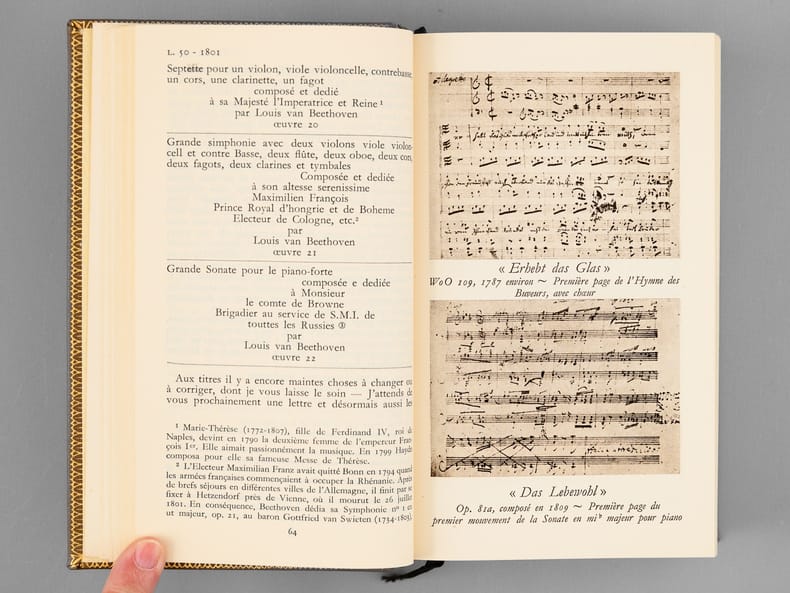 L. 50 - 1801
Septette pour un violon, viole violoncelle, contrebasse
un cors, une clarinette, un fagot
composé et dedié
à sa Majesté l'Imperatrice et Reine ¹
par Louis van Beethoven
œuvre 20
Grande simphonie avec deux violons viole violon-
cell et contre Basse, deux flûte, deux oboe, deux cors,
deux fagots, deux clarines et tymbales
Composée et dediée
à son altesse serenissime
Maximilien François
Prince Royal d'hongrie et de Boheme
Electeur de Cologne, etc.²
par
Louis van Beethoven
œuvre 21
Grande Sonate pour le piano-forte
composée e dediée
à Monsieur
le comte de Browne
Brigadier au service de S.M.I. de
touttes les Russies ③
par
Louis van Beethoven
œuvre 22
Aux titres il y a encore maintes choses à changer ou
à corriger, dont je vous laisse le soin — J'attends de
vous prochainement une lettre et désormais aussi les
¹ Marie-Thérèse (1772-1807), fille de Ferdinand IV, roi de
Naples, devint en 1790 la deuxième femme de l'empereur Fran-
çois Iᵉʳ. Elle aimait passionnément la musique. En 1799 Haydn
composa pour elle sa fameuse Messe de Thérèse.
² L'Electeur Maximilian Franz avait quitté Bonn en 1794 quand
les armées françaises commençaient à occuper la Rhénanie. Après
de brefs séjours en différentes villes de l'Allemagne, il finit par se
fixer à Hetzendorf près de Vienne, où il mourut le 26 juillet
1801. En conséquence, Beethoven dédia sa Symphonie nº 1 en
ut majeur, op. 21, au baron Gottfried van Swieten (1734-1803),
64
« Erhebt das Glas »
WoO 109, 1787 environ ~ Première page de l'Hymne des
Buveurs, avec chœur
« Das Lebewohl »
Op. 81a, composé en 1809 ~ Première page du
premier mouvement de la Sonate en mi♭ majeur pour piano